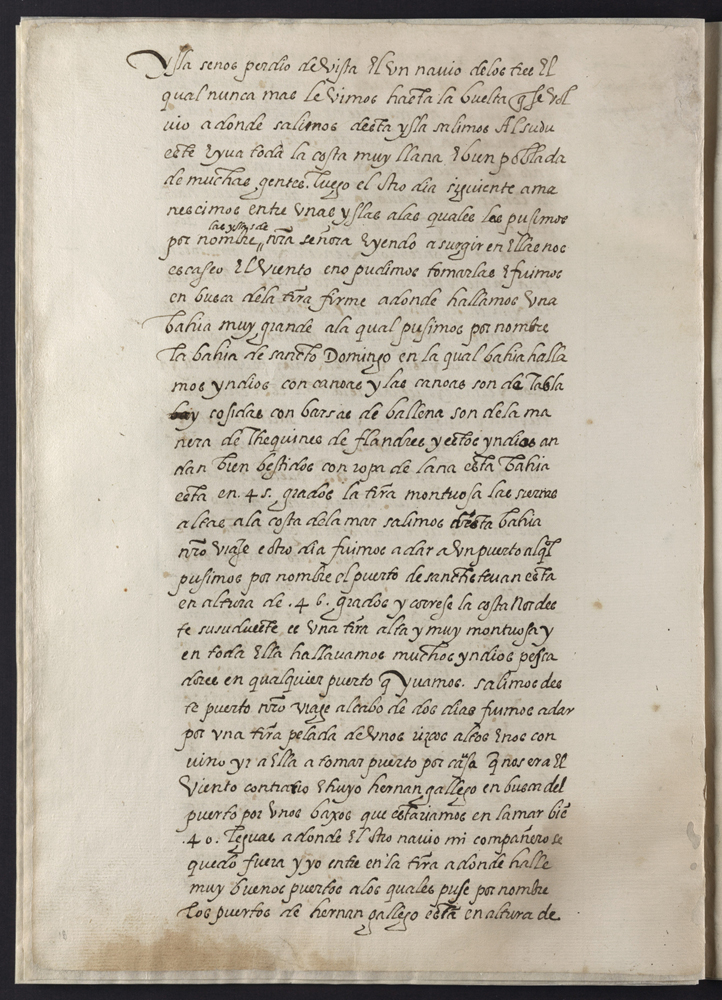 ysla senos perdio de vista El vn navio delos tres El
qual nunca mas le vimos hasta la buelta q se vol
uio a donde salimos desta ysla salimos Al sudu
este E yua toda la costa muy llana E bien poblada
de muchas gentes. luego el otro dia siguiente ama
nescimos entre vnas yslas alas quales les pusimos
las yslas de
por nombre nra señora E yendo a surgir en Ellas nos
escaseo El viento e no pudimos tomarlas E fuimos
en busca dela tirra firme a donde hallamos vna
bahia muy grande ala qual pusimos por nombre
la bahia de sancto Domingo en la qual bahia halla
mos yndios con canoas y las canoas son de tabla
cosidas con barsas de ballena son dela ma
nera de de flandres y estos yndios an
dan bien bestidos con ropa de lana esta bahia
esta en .45. grados la tirra montuosa las sierras
altas ala costa dela mar salimos desta bahia
nro viaje e otro dia fuimos a dar a vn puerto alql
pusimos por nombre el puerto de sanctisteuan esta
en altura de .46. grados y correse la costa Nordes
te susudueste es vna tirra alta y muy montuosa y
en toda Ella hallauamos muchos yndios pesca
dores en qualquier puerto q yuamos. salimos des
te puerto nro viaje alcabo de dos dias fuimos a dar
por vna tirra pelada de vnos riscos altos E nos con
uino yr a Ella a tomar puerto por causa q nos era El
viento contrario E huyo hernan gallego en busca del
puerto por vnos baxos que estariamos en la mar bie
.40. leguas a donde El otro navio mi compañero se
quedo fuera y yo entre en la tirra a donde halle
muy buenos puertos alos quales puse por nombre
los puertos de hernan gallego esta en altura de